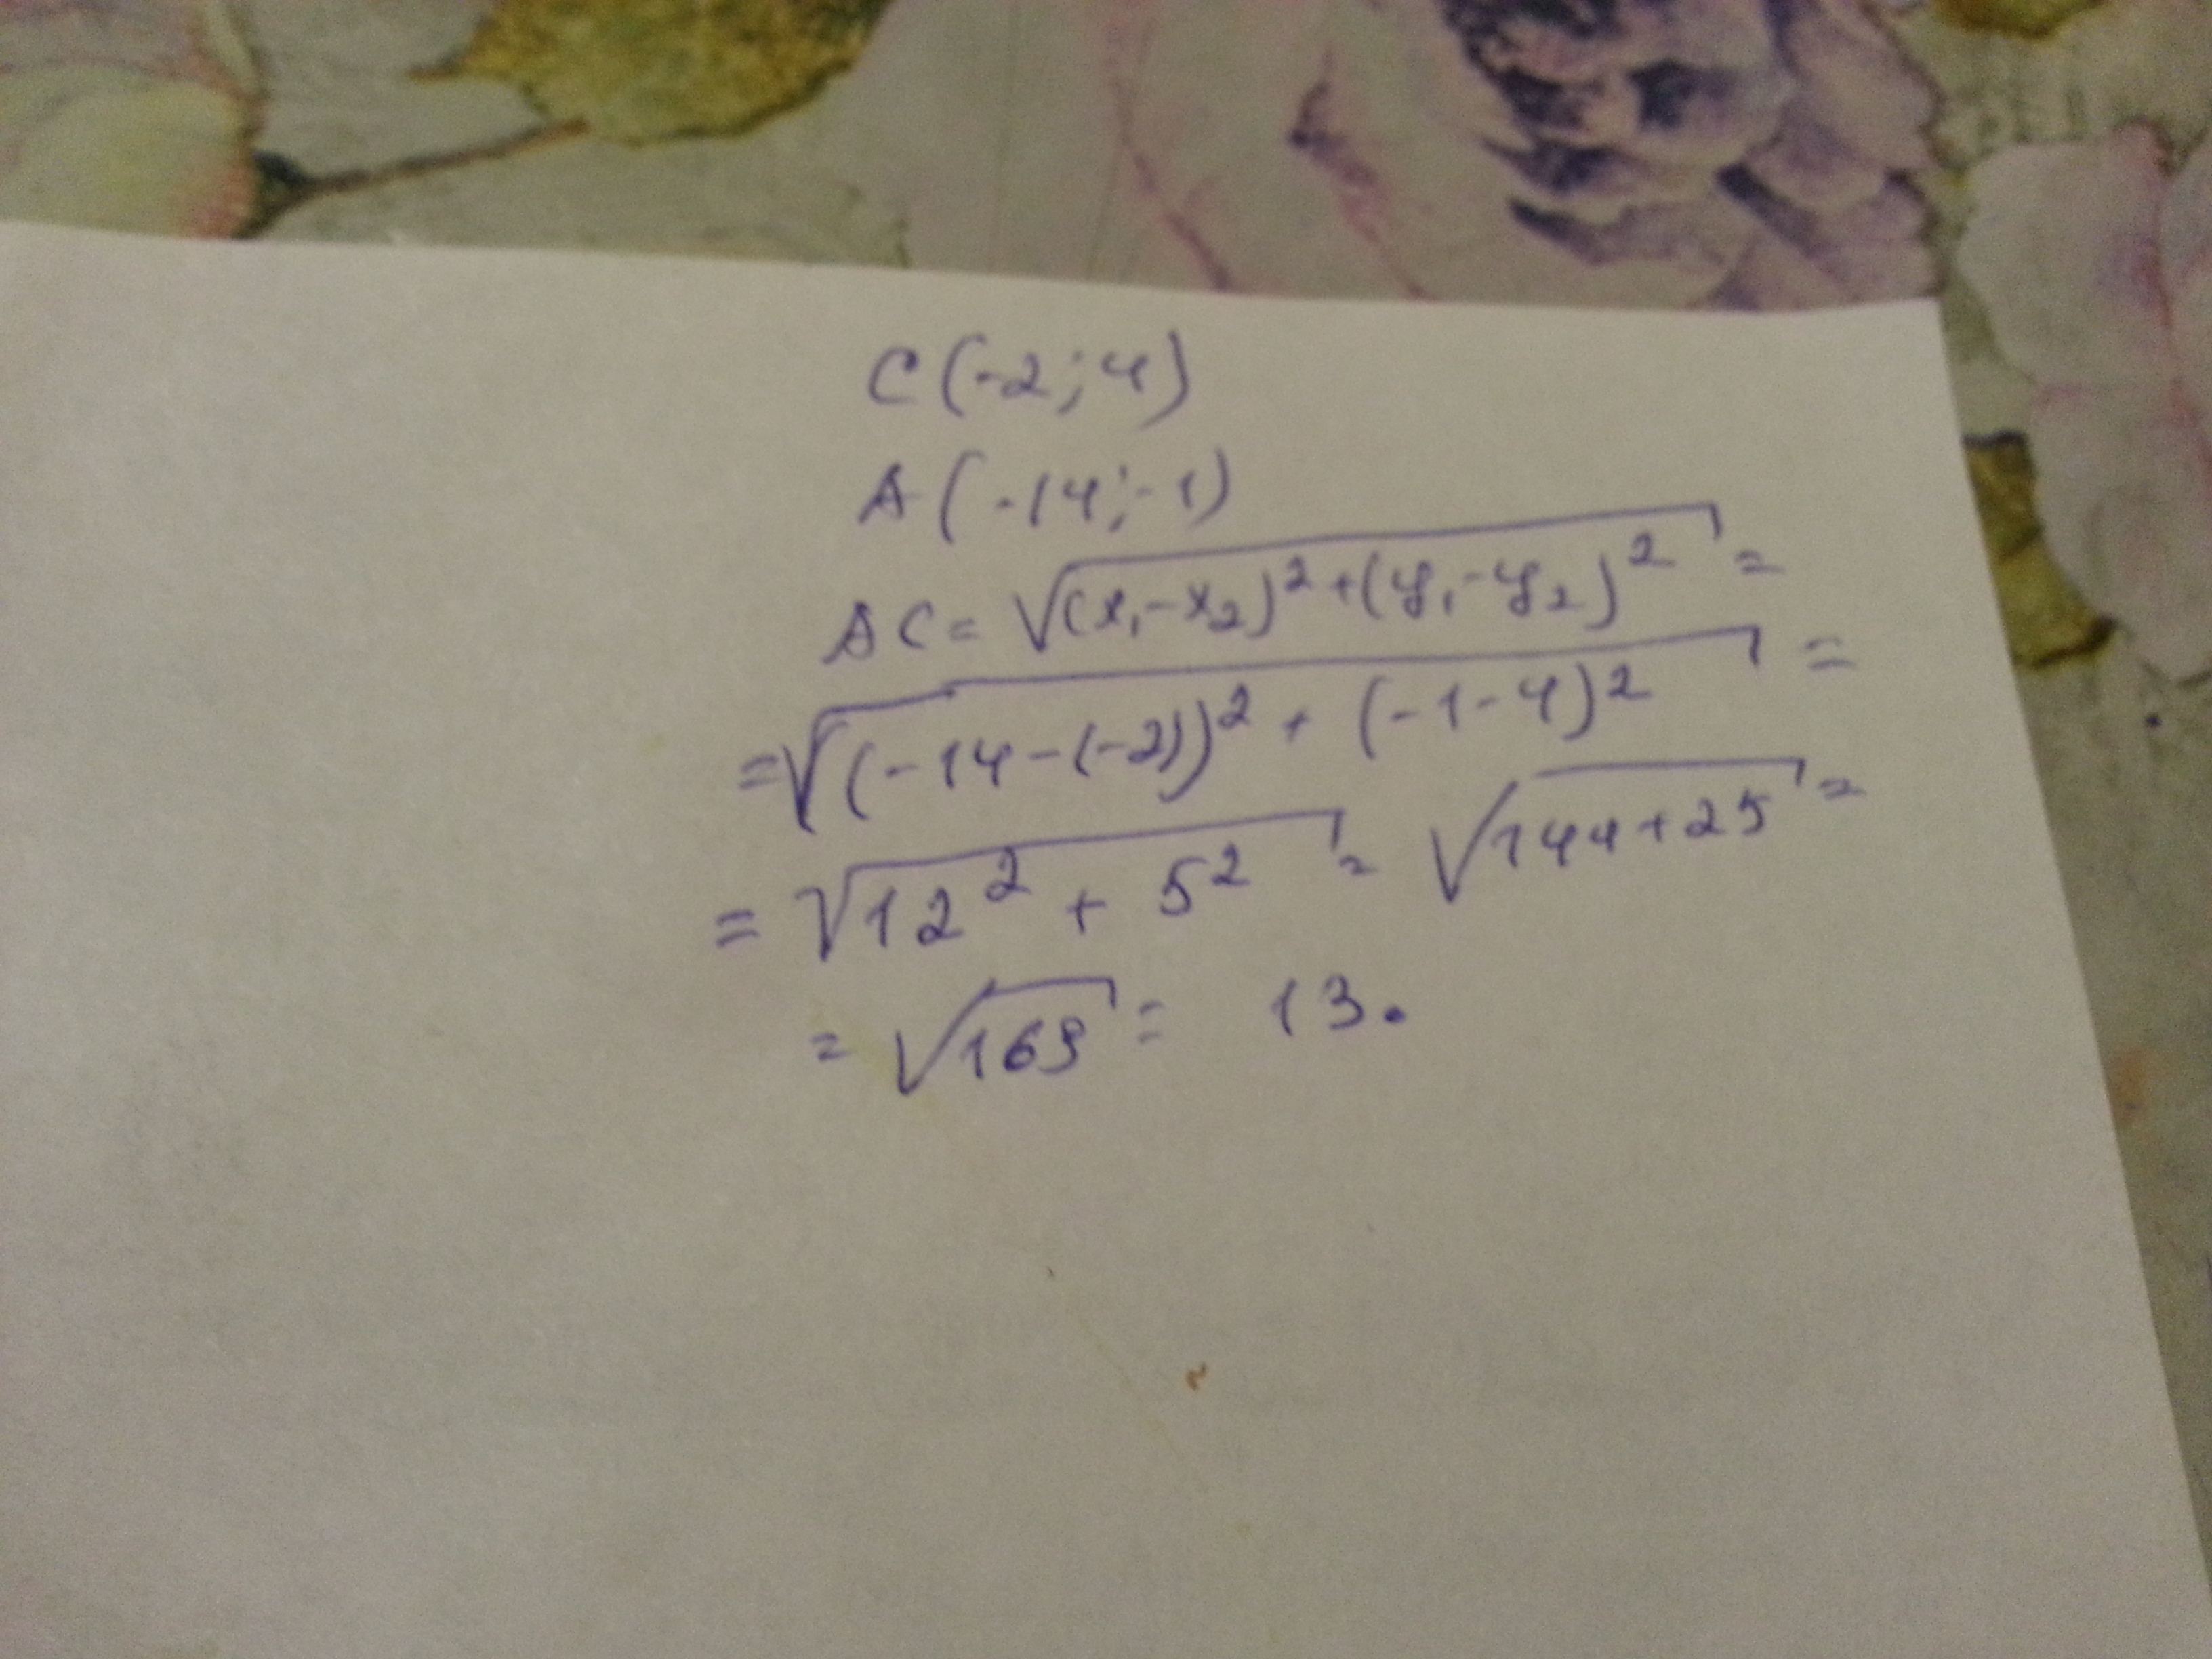 C(-2;4)
A(-14;-1)
AC=√(x₁-x₂)²+(y₁-y₂)²=
=√(-14-(-2))²+(-1-4)²=
=√12²+5²=√144+25=
=√169=13.